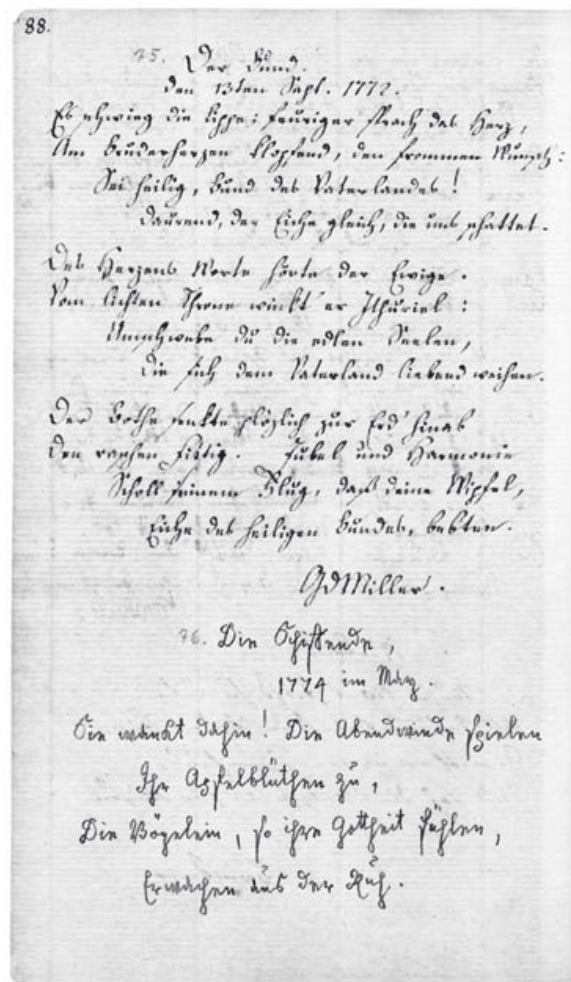 88.
75. Der Bund.
den 13ten Sept. 1772.
Es schwieg die Lippe; feuriger sprach das Herz,
Am Bruderherzen klopfend, den frommen Wunsch:
Sei heilig, Bund des Vaterlandes!
Daurend, der Eiche gleich, die uns schattet.
Des Herzens Worte hörte der Ewige.
Vom lichten Throne winkt' er Ithuriel:
Umschwebe du die edlen Seelen,
Die sich dem Vaterland liebend weihen.
Der Bothe senkte plözlich zur Erd' hinab
Den raschen Fittig. Jubel und Harmonie
Scholl seinem Flug, daß deine Wipfel,
Eiche des heiligen Bundes, bebten.
GDMiller.
76. Die Schiffende,
1774 im May.
Sie wankt dahin! Die Abendwinde spielen
Ihr Apfelblüthen zu,
Die Vögelein, so ihre Gottheit fühlen,
Erwachen aus der Ruh.